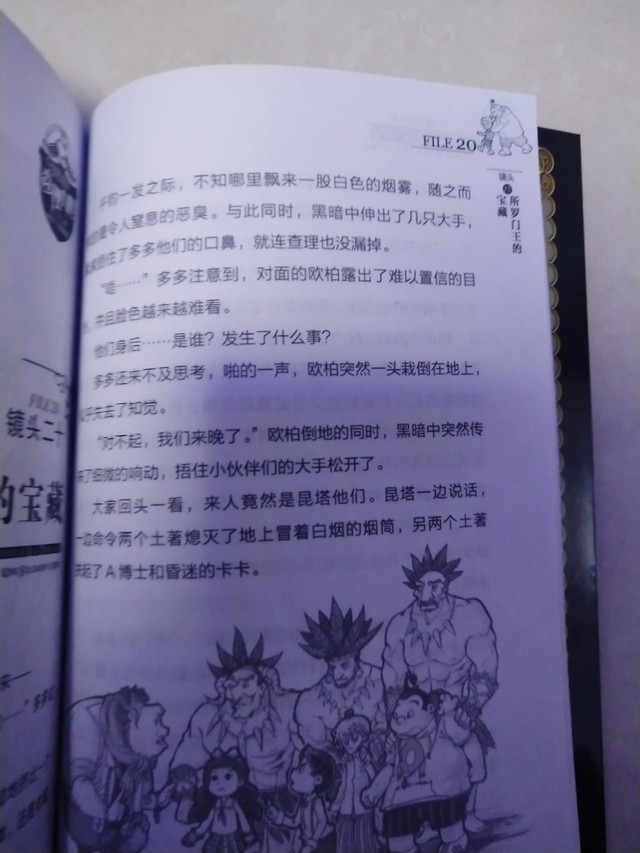 FILE 20
镜头
所罗门王的
宝藏
一发之际，不知哪里飘来一股白色的烟雾，随之而
是令人窒息的恶臭。与此同时，黑暗中伸出了几只大手，
住了多多他们的口鼻，就连查理也没漏掉。
……”多多注意到，对面的欧柏露出了难以置信的目
，并且脸色越来越难看。
他们身后……是谁？发生了什么事？
多多还来不及思考，啪的一声，欧柏突然一头栽倒在地上，
乎失去了知觉。
“对不起，我们来晚了。”欧柏倒地的同时，黑暗中突然传
来了细微的响动，捂住小伙伴们的大手松开了。
大家回头一看，来人竟然是昆塔他们。昆塔一边说话，
一边命令两个土著熄灭了地上冒着白烟的烟筒，另两个土著
起了A博士和昏迷的卡卡。
FILE 20
镜头二十
的宝藏